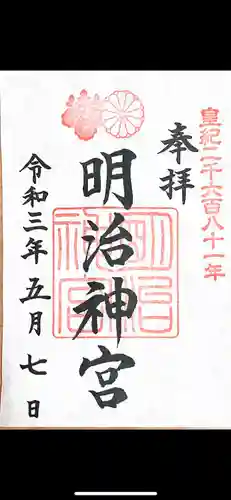 皇紀二千六百八十一年
奉拝
明治神宮
明治神宮
令和三年五月七日